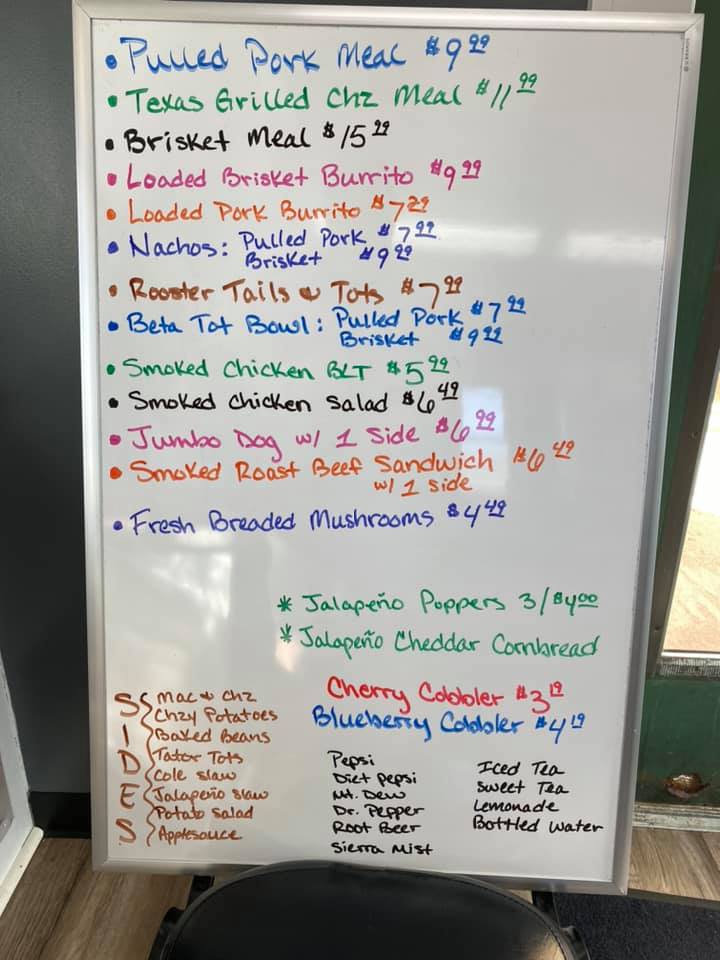 • Pulled Pork Meal $9.99
• Texas Grilled Chz Meal $11.99
• Brisket Meal $15.99
• Loaded Brisket Burrito $9.99
• Loaded Pork Burrito $7.99
• Nachos: Pulled Pork $7.99
Brisket $9.99
• Rooster Tails & Tots $7.99
• Beta Tot Bowl: Pulled Pork $7.99
Brisket $9.99
• Smoked Chicken BLT $5.99
• Smoked Chicken Salad $6.49
• Jumbo Dog w/ 1 Side $6.99
• Smoked Roast Beef Sandwich $6.49
w/ 1 side
• Fresh Breaded Mushrooms $4.49
* Jalapeño Poppers 3/$4.00
* Jalapeño Cheddar Cornbread
Cherry Cobbler $3.19
Blueberry Cobbler $4.19
SIDES
Mac & Chz
Chzy Potatoes
Baked Beans
Tator Tots
Cole Slaw
Jalapeño Slaw
Potato Salad
Applesauce
Pepsi
Diet Pepsi
Mt. Dew
Dr. Pepper
Root Beer
Sierra Mist
Iced Tea
Sweet Tea
Lemonade
Bottled Water